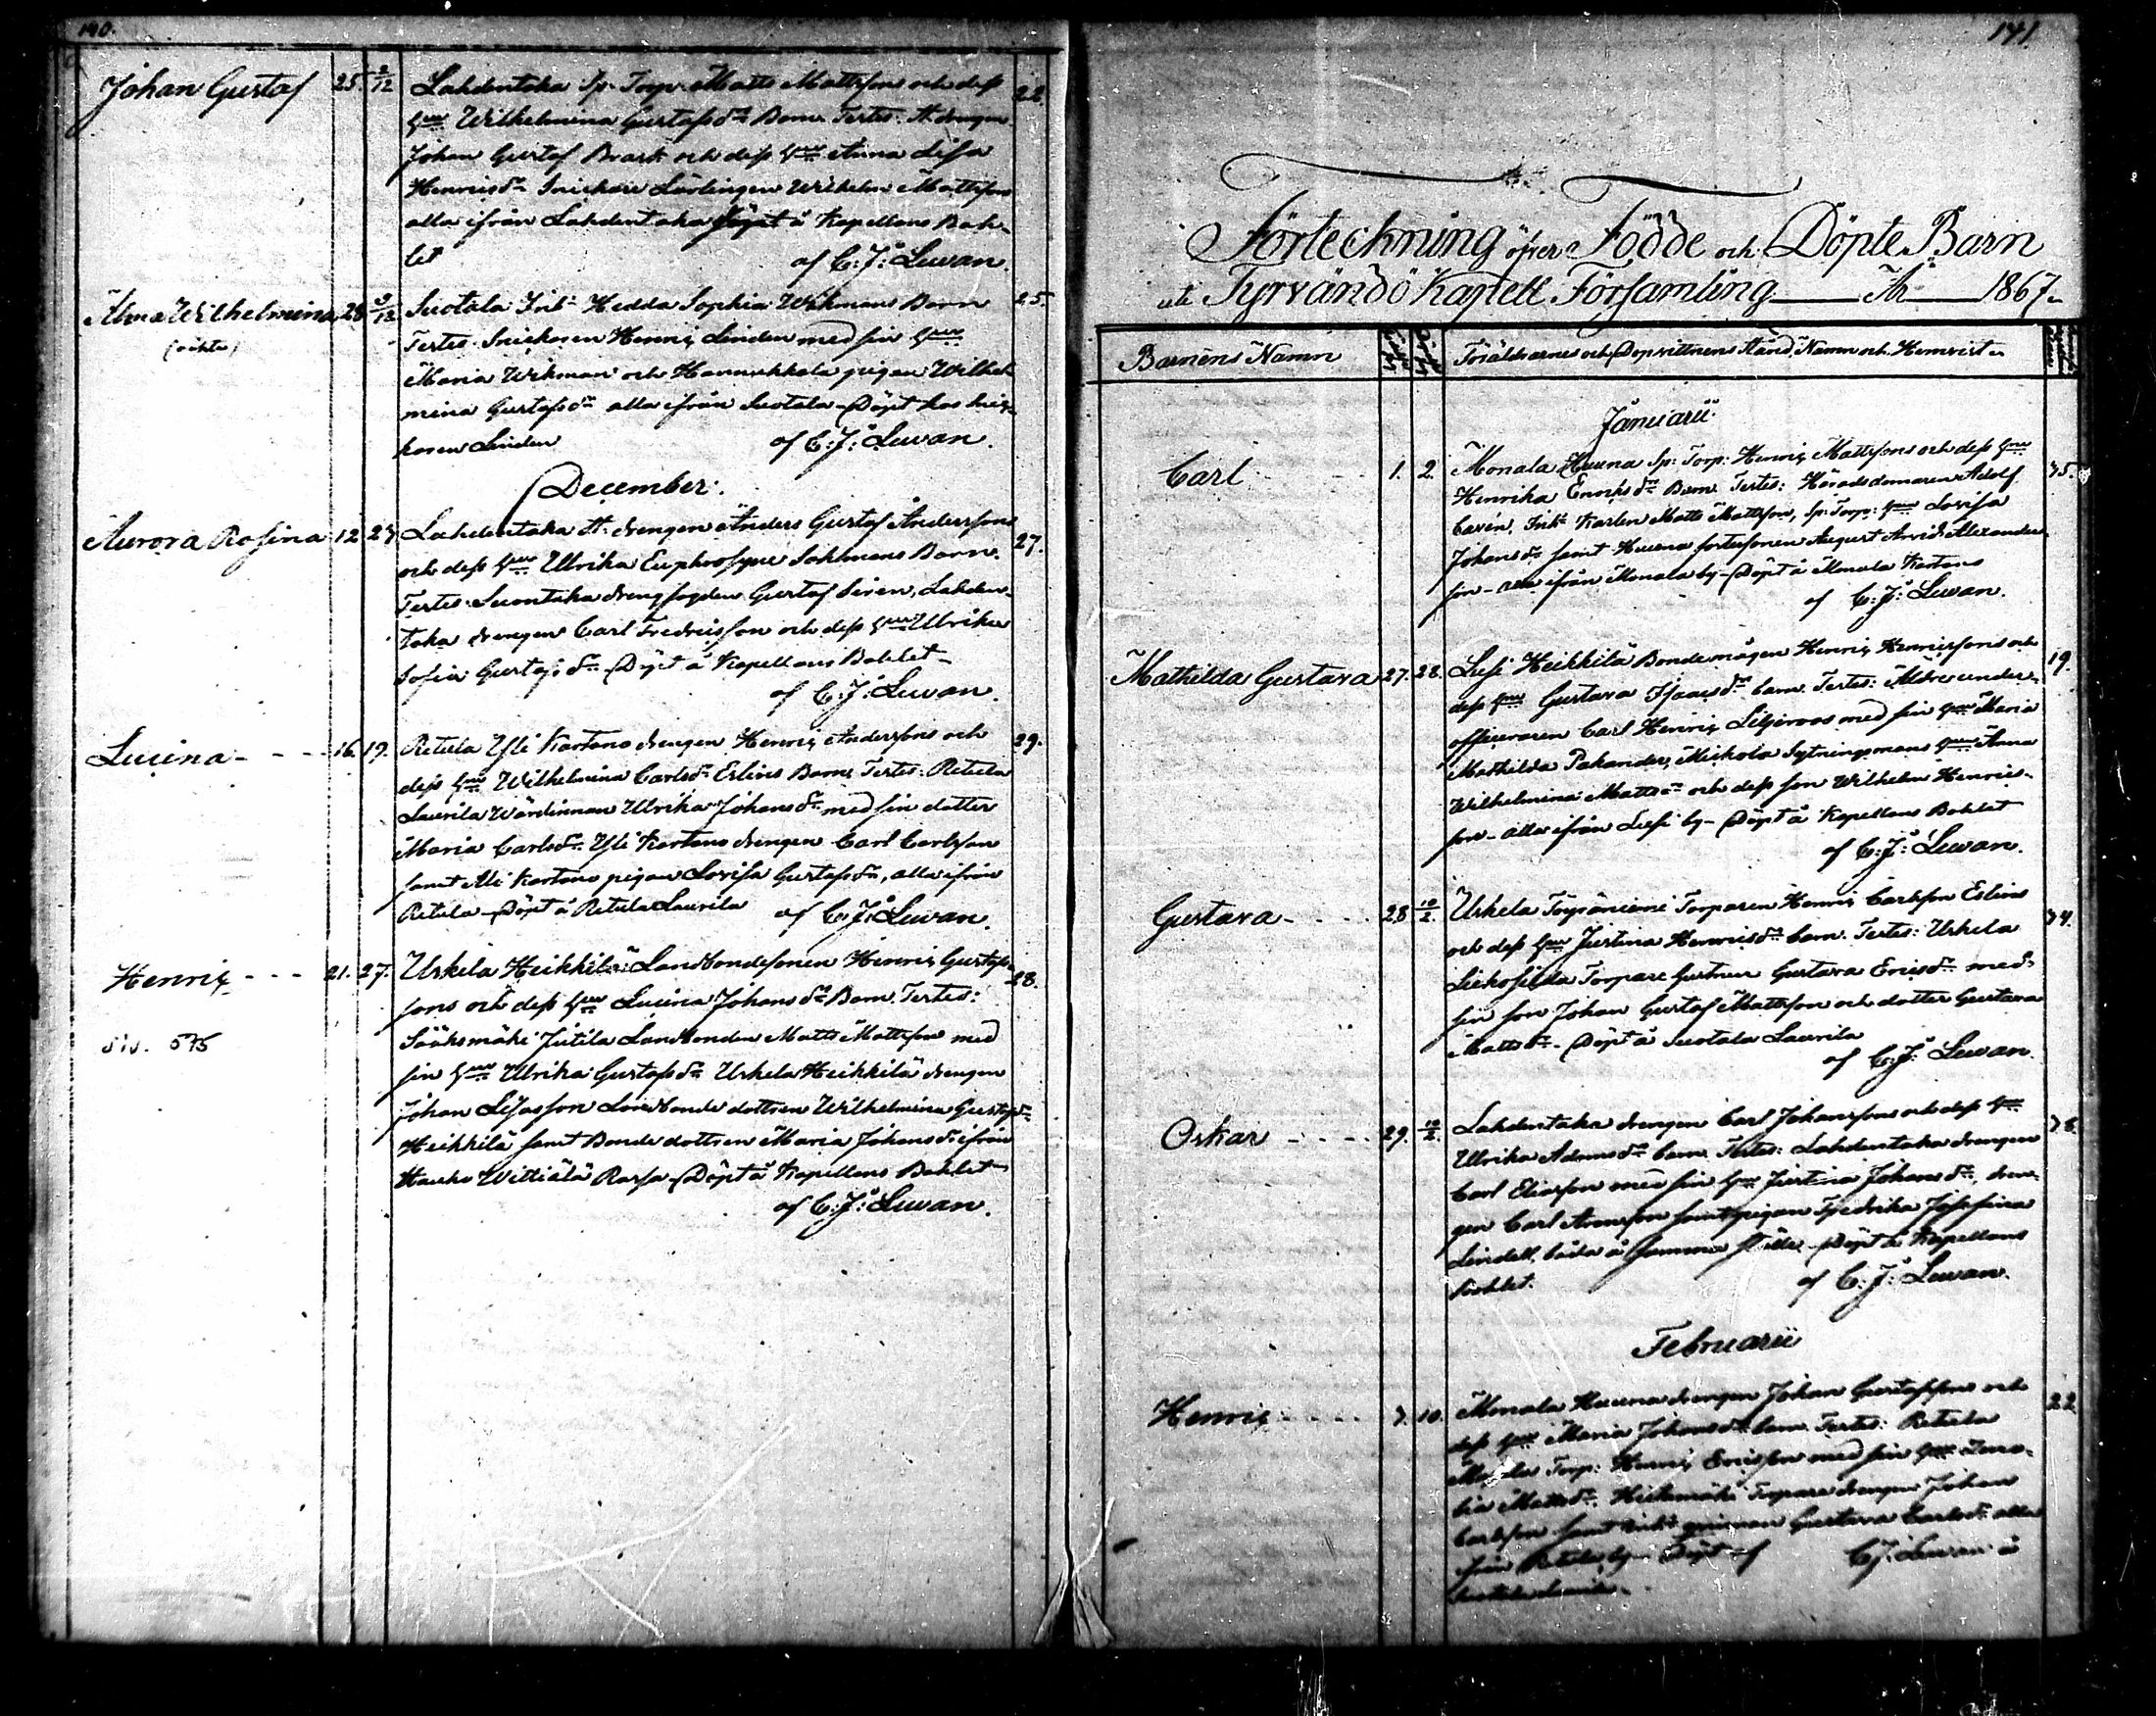 140.
Johan Gustaf 25. 2/12 Lahdentaka Sp. Torp. Matts Mattssons och dess 22.
hu Wilhelmina Gustafsdr Barn. Testes: St. drengen
Johan Gustaf Brask och dess hu Anna Lisa
Henricsdr Snickare Lärlingen Wilhelm Mattsson
alla ifrån Lahdentaka Döpt å Kapellans Bohl-
let af C: J: Lewan.
Alma Wilhelmina 28 3/12 Suotala Inh: Hedda Sophia Wikmans Barn 25.
(oäkta) Testes Snickaren Henric Linden med sin hu
Maria Wikman och Hannukkala pigan Wilhel-
mina Gustafsdr alla ifrån Suotala - Döpt hos Snic-
karen Linden af C: J: Lewan.
December.
Aurora Rosina 12 27 Lahdentaka St. drengen Anders Gustaf Anderssons 27.
och dess hu Ulrika Euphrosyne Sahlmans Barn.
Testes: Suontaka drengfogden Gustaf Siren, Lahden-
taka drengen Carl Fredricsson och dess hu Ulrika
Sofia Gustafsdr - Döpt å Kapellans Bohlet -
af C: J: Lewan.
Lucina - - - 16. 17. Retula Yli Kartano drengen Henric Anderssons och 29.
dess hu Wilhelmina Carlsdr Eslins Barn. Testes: Retula
Laurila Wärdinnan Ulrika Johansdr med sin dotter
Maria Carlsdr Yli Kartano drengen Carl Carlsson
samt Ali Kartano pigan Lovisa Gustafsdr, alla ifrån
Retula - Döpt å Retula Laurila af C: J: Lewan.
Henric - - - 21. 27. Uskela Heikkilä Landbondesonen Henric Gustafs- 28.
sons och dess hu Lucina Johansdr Barn. Testes:
Sääksmäki Jutila Landbonden Matts Mattsson med
sin hu Ulrika Gustafsdr Uskela Heikkilä drengen
Johan Lisasson Landbonde dottren Wilhelmina Gustafsdr
Heikkilä samt Bonde dottren Maria Johansdr ifrån
Hauho Wittiälä Rassa - Döpt å Kapellans Bohlet -
af C: J: Lewan.
siv. 575
141
Förteckning öfver Födde och Döpte Barn
uti Tyrvändö Kapell Församling År 1867.
Barnens Namn Föräldrarnes och Dopvittnens Stånd, Namn och Hemvist
Januarii
Carl 1. 2. Monala Huuna Sp: Torp: Henric Mattssons och dess hu 35.
Henrika Enricsdr Barn. Testes: Häradsdomaren Adolf
Caven, Inh: Karlen Matts Mattsson, Sp: Torp: hu Lovisa
Johansdr samt Huuna fostersonen August Arvid Alexanders-
son - alla ifrån Monala by - Döpt å Monala Kartano
af C: J: Lewan.
Mathilda Gustava 27. 28. Lusi Heikkilä Bondemågen Henric Henricssons och 19.
dess hu Gustava Isaacsdr barn. Testes: Äldre under-
officeraren Carl Henric Liljeroos med sin hu Maria
Mathilda Pakander, Mickola Sytningsmans hu Anna
Wilhelmina Mattsdr och dess son Wilhelm Henrics-
son - alla ifrån Lusi by - Döpt å Kapellans Bohlet
af C: J: Lewan.
Gustava - - - 28 10/2. Uskela Töyräniemi Torparen Henric Carlsson Eslins 34.
och dess hu Justina Henricsdr barn. Testes: Uskela
Liekosilda Torpare hustrun Gustava Ericsdr med
sin son Johan Gustaf Mattsson och dotter Gustava
Mattsdr - Döpt å Suotala Laurila
af C: J: Lewan.
Oskar - - - 29. 10/2. Lahdentaka drengen Carl Johanssons och dess hu 38.
Ulrika Adamsdr barn. Testes: Lahdentaka drengen
Carl Eliasson med sin hu Justina Johansdr, dren-
gen Carl Aronsson samt pigan Fredrika Josefina
Lindell, båda å samma ställe - Döpt å Kapellans
Bohlet. af C: J: Lewan.
Februarii
Henric - - - - 7. 10. Monala Huuna drengen Johan Gustafssons och 22
dess hu Maria Johansdr barn. Testes: Retula
Torp: Henric Ericsson med sin hu
Mattsdr, Torpare drengen Johan
Carlsson samt Inh: Gustava Carlsdr alla
ifrån Retula by - Döpt af C: J: Lewan å
Suotala Laurila.